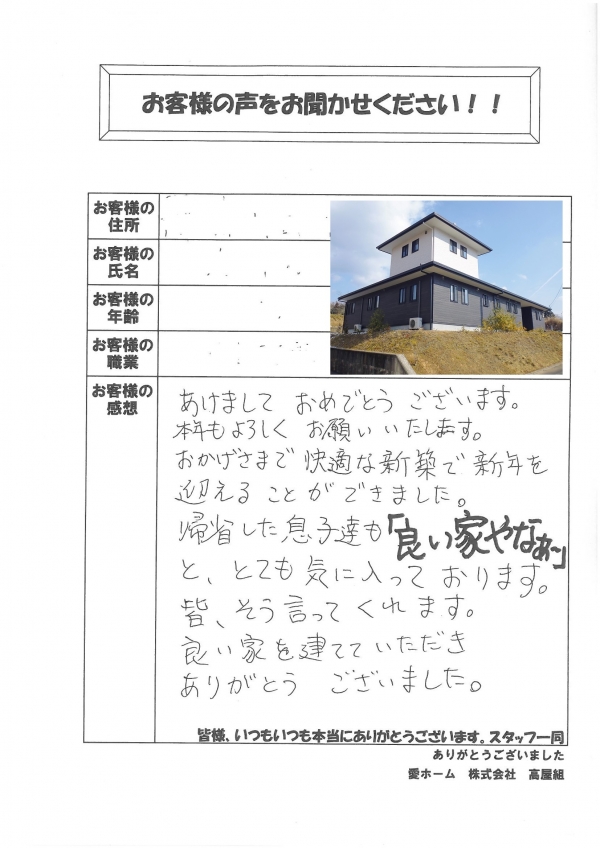 お客様の声をお聞かせください！！
お客様の
住所
お客様の
氏名
お客様の
年齢
お客様の
職業
お客様の
感想
あけまして おめでとう ございます。
本年もよろしく お願いいたします。
おかげさまで 快適な新築で新年を
迎えることができました。
帰省した息子達も「良い家やなぁ～」
と、とても気に入っております。
皆、そう言ってくれます。
良い家を建てていただき
ありがとう ございました。
皆様、いつもいつも本当にありがとうございます。スタッフ一同
ありがとうございました
愛ホーム 株式会社 高屋組